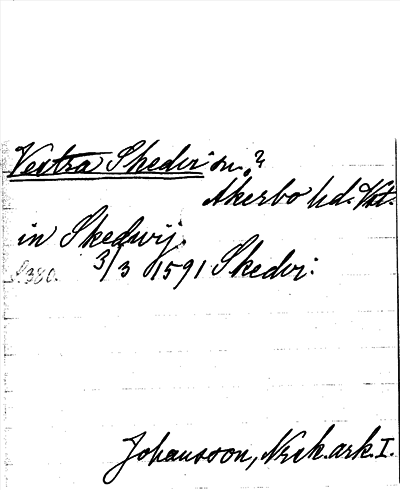 Vestra Skedvi sn.?
Akerbo hd. Vstl.
in Skedwij.
S.380. 3/3 1591 Skedvi.
Johansson, Nyck.ark. I.